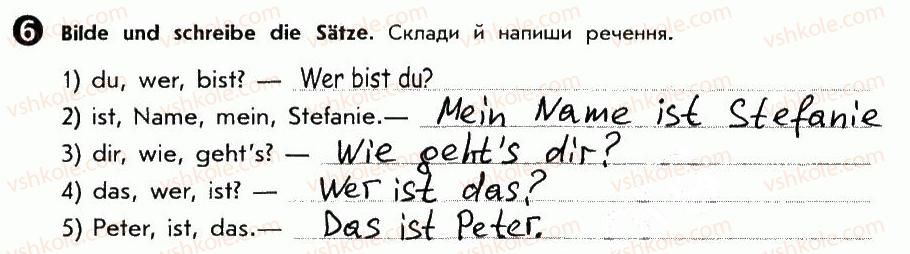 6 Bilde und schreibe die Sätze. Склади й напиши речення.
1) du, wer, bist? — Wer bist du?
2) ist, Name, mein, Stefanie.— Mein Name ist Stefanie
3) dir, wie, geht's? — Wie geht's dir?
4) das, wer, ist? — Wer ist das?
5) Peter, ist, das.— Das ist Peter.